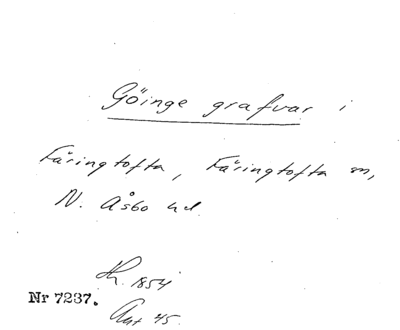 Göinge grafvar i
Färingtofta, Färingtofta sn,
N. Åsbo hd.
1854
Nr 7237.
Ant 45.